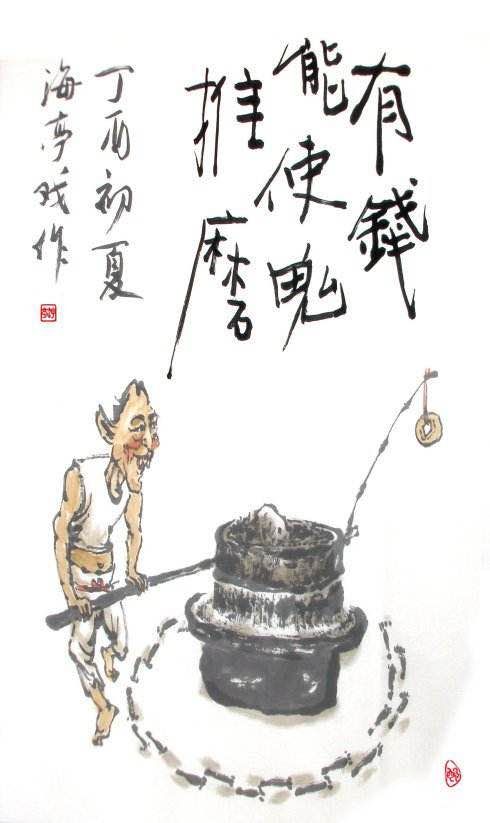 有錢
能使鬼
推磨
丁酉初夏
海亭戏作